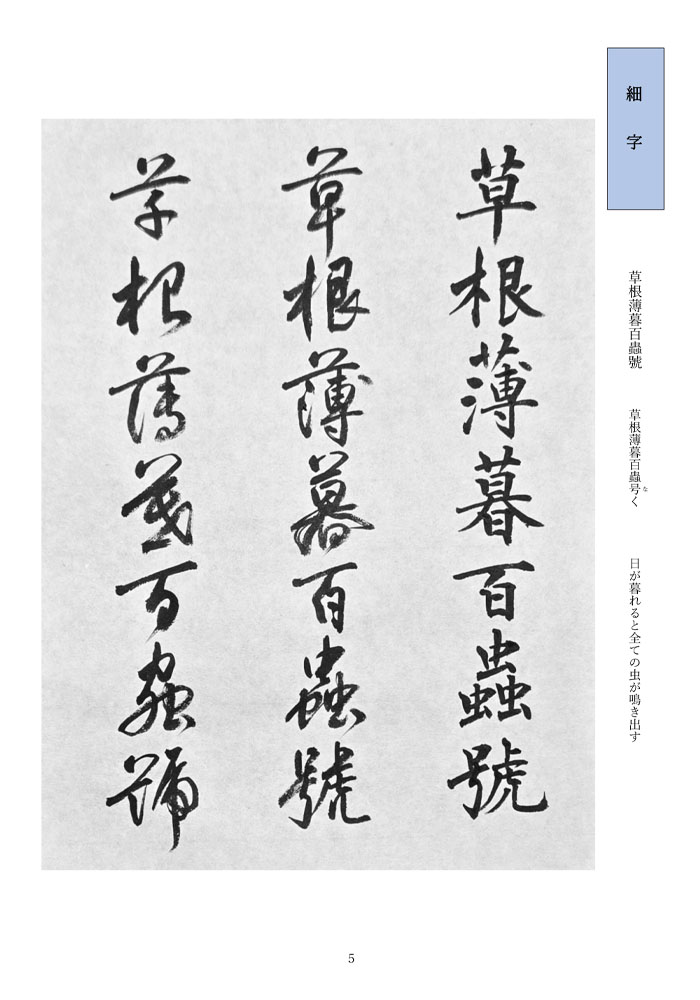 細字
草根薄暮百蟲號
草根薄暮百蟲号く
な
日が暮れると全ての虫が鳴き出す
草根薄暮百蟲號
草根薄暮百蟲號
草根薄暮百蟲號
5